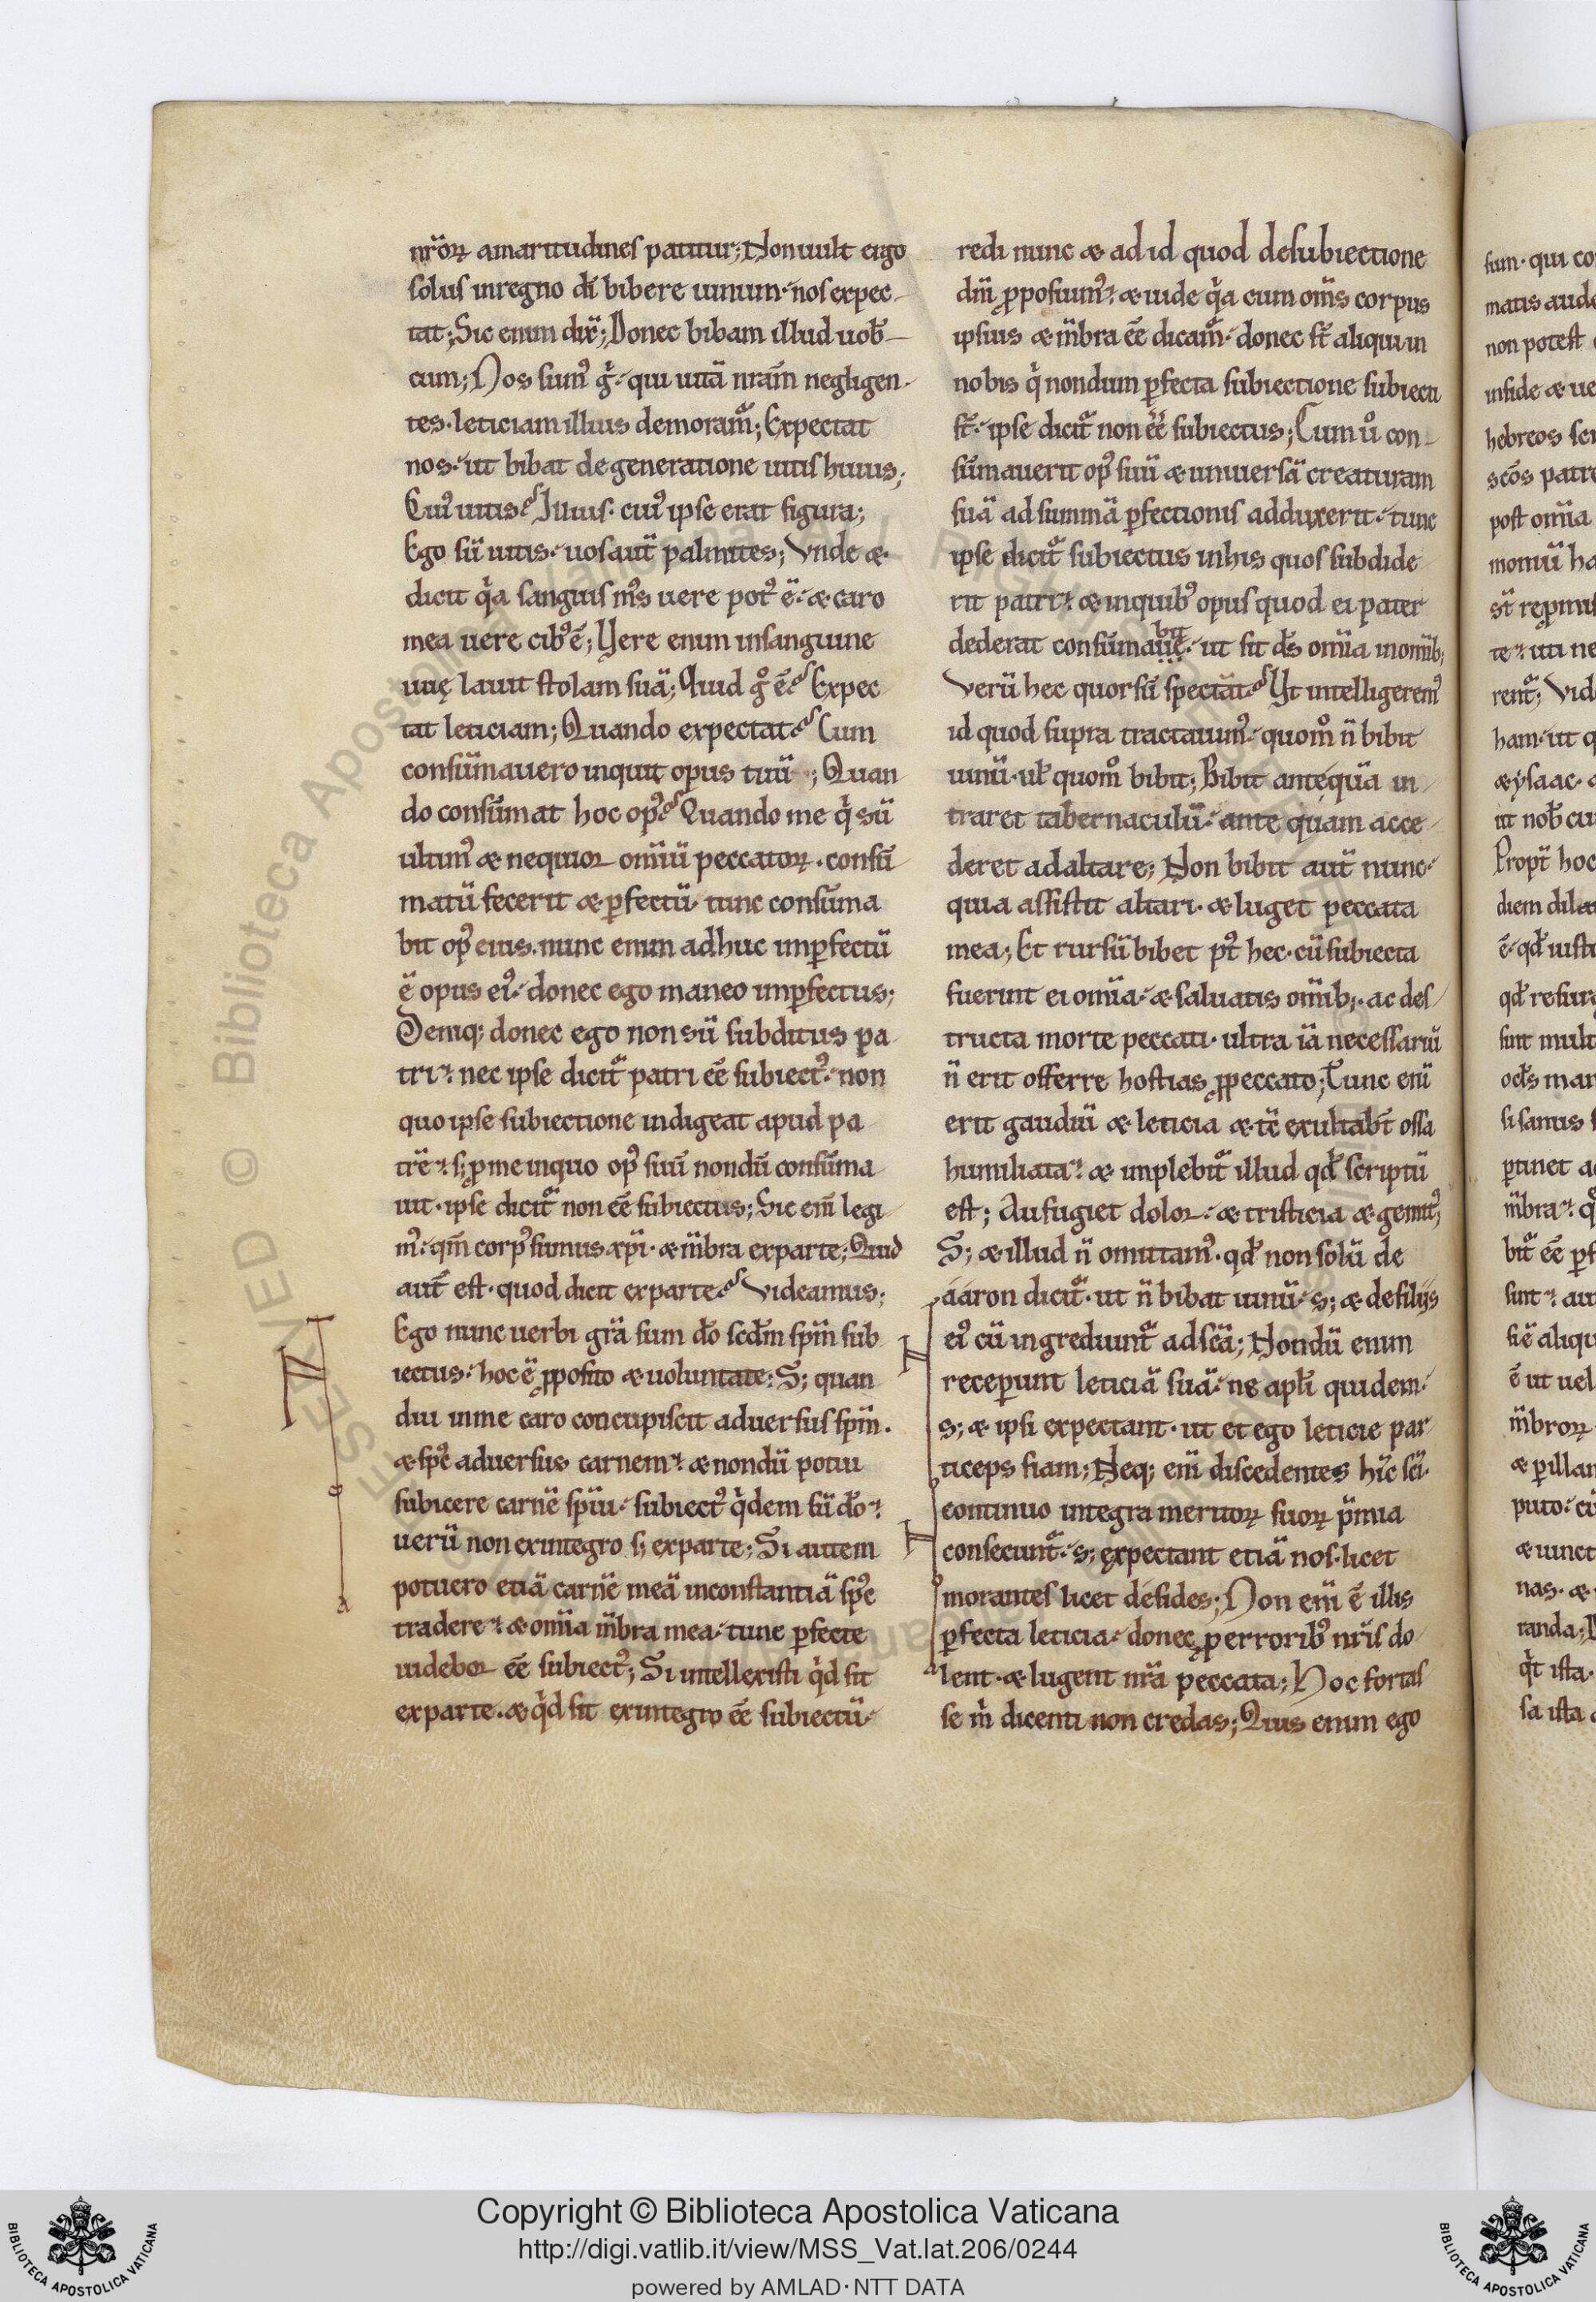 nr̄oꝝ amaritudines patitur; Non uult ergo
solus in regno dī bibere uinum· nos expec-
tat; Sic enim dix̄; Donec bibam illud uob̄-
cum; Nos sumꝰ g̊· qui uitā nr̄am negligen-
tes· leticiam illius demoram̄; Expectat
nos· ut bibat de generatione uitis huius;
Cuiꝰ uitis? Illius· cuiꝰ ipse erat figura;
Ego sū uitis· uos aut̄ palmites; Vnde æ
dicit qͥa sanguis mꝰs uere potꝰ ē· æ caro
mea uere cibꝰ ē; Vere enim in sanguine
uuę lauit stolam suā; Quid g̊ ē? Expec-
tat leticiam; Quando expectat? Cum
consūmauero inquit opus tuū; Quan-
do consūmat hoc opꝰ? Quando me qͥ sū
ultimꝰ æ nequior omīū peccatoꝝ· consū-
matū fecerit æ ꝑfectū· tunc consūma-
bit opꝰ eius· nunc enim adhuc imꝑfectū
ē opus eiꝰ· donec ego maneo imꝑfectus;
Deniq; donec ego non sū subditus pa-
tri· nec ipse dicit̄ patri eē subiectꝰ· non
quo ipse subiectione indigeat apud pa-
trē· s; ꝓ me in quo opꝰ suū nondū consūma-
uit· ipse dicit̄ non eē subiectus; Sic eni̅ legi-
mꝰ· qm̄ corpꝰ sumus xp̄i· æ m̄bra ex parte; Quid
aut̄ est· quod dicit ex parte? Videamus;
Ego nunc uerbi gr̄a sum dō scdm̄ spm̄ sub-
iectus· hoc ē ꝓposito æ uoluntate; S; quan-
diu in me caro concupiscit aduersus spm̄·
æ spc̄ aduersus carnem· æ nondū potui
subicere carnē spūi· subiectꝰ qͥdem sū dō·
uerū non ex integro s; ex parte; Si autem
potuero etiā carnē meā in constantiā spc̄
tradere· æ om̄ia m̄bra mea· tunc ꝑfecte
uidebor eē subiectꝰ; Si intellexisti qͥd sit
ex parte· æ qͥd sit ex integro eē subiectū·
redi nunc æ ad id quod de subiectione
dn̄i ꝓposuimꝰ· æ uide qͥa cum om̄s corpus
ipsius æ m̄bra eē dicam̄· donec st̄ aliqui in
nobis qͥ nondum ꝑfecta subiectione subiecti
st̄· ipse dicit̄ non eē subiectus; Cum ů con-
sūmauerit opꝰ suū æ uniuersā creaturam
suā ad summā ꝑfectionis adduxerit· tunc
ipse dicit̄ subiectus in his quos subdide-
rit patri· æ in quibꝰ opus quod ei pater
dederat consūmaue bit· ut sit d̄s om̄ia in omīb;
Verū hec quorsū spectāt? Vt intelligeremꝰ
id quod supra tractauimꝰ· quom̊ n̄ bibit
uinū· ul̄ quom̊ bibit; Bibit antequā in-
traret tabernaculū· ante quam acce-
deret ad altare; Non bibit aut̄ nunc·
quia assistit altari· æ luget peccata
mea; Et rursū bibet pꝰt hec· cū subiecta
fuerint ei om̄ia· æ saluatis omīb;· ac des-
tructa morte peccati· ultra iā necessariū
n̄ erit offerre hostias ꝓ peccato; Tunc eni̅
erit gaudiū æ leticia æ tc̄ exultabt̄ ossa
humiliata· æ implebit̄ illud qd̄ scriptū
est; Aufugiet dolor· æ tristicia æ gemitꝰ;
S; æ illud n̄ omittamꝰ· qd̄ non solū de
aaron dicit̄· ut n̄ bibat uinū· s; æ de filijs
eiꝰ cū ingrediunt̄ ad sc̄a; Nondū enim
receperunt leticiā suā· ne apl̄i quidem·
s; æ ipsi expectant· ut et ego leticie par-
ticeps fiam; Neq; eni̅ discedentes hīc sc̄i·
continuo integra meritoꝝ suoꝝ p̄mia
consecunt̄· s; expectant etiā nos· licet
morantes licet desides; Non eni̅ ē illis
ꝑfecta leticia· donec ꝓ erroribꝰ nr̄is do-
lent· æ lugent nr̄a peccata; Hoc fortas-
se m̄ dicenti non credas; Quis enim ego
Copyright © Biblioteca Apostolica Vaticana
http://digi.vatlib.it/view/MSS_Vat.lat.206/0244
powered by AMLAD·NTT DATA
BIBLIOTECA APOSTOLICA VATICANA
BIBLIOTECA APOSTOLICA VATICANA